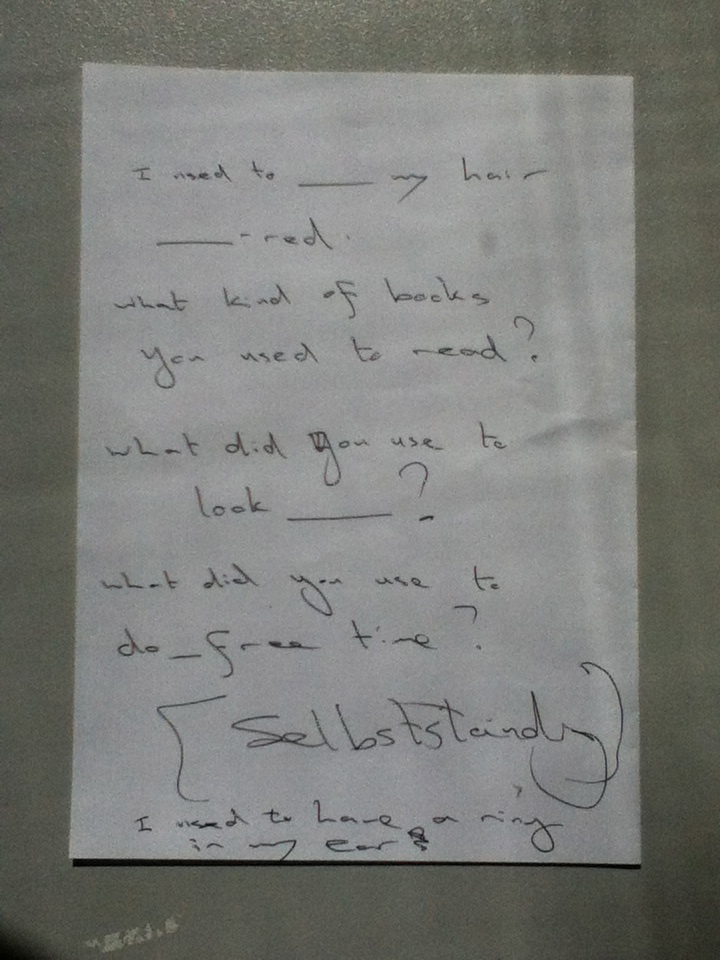 I used to ____ my hair
____-red.
what kind of books
you used to read?
what did you use to
look ____?
what did you use to
do _ free time?
[Selbstständig]
I used to have a ring
in my ear